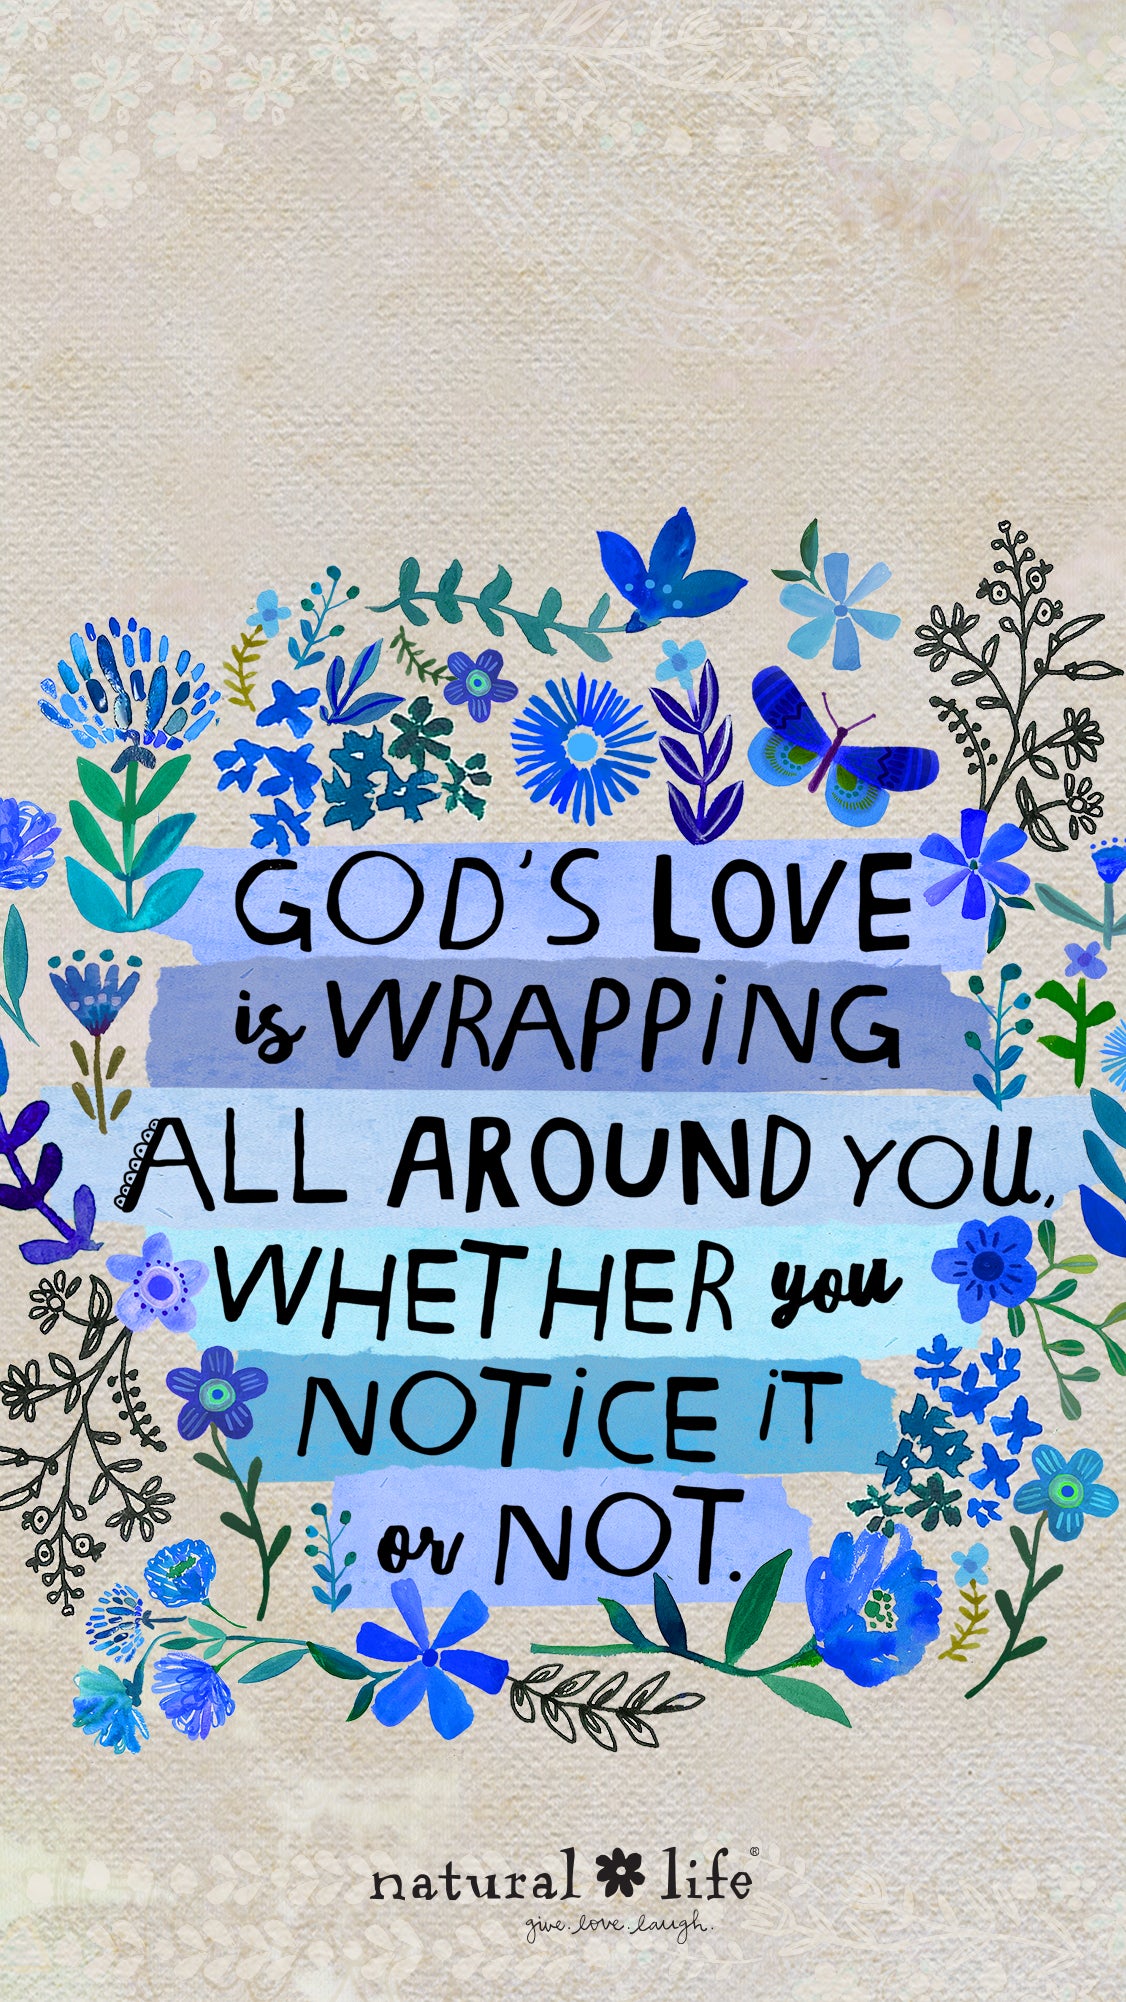 GOD'S LOVE
is WRAPPiNG
ALL AROUND YOU,
WHETHER you
NOTiCE iT
or NOT.
natural life®
give. love. laugh.